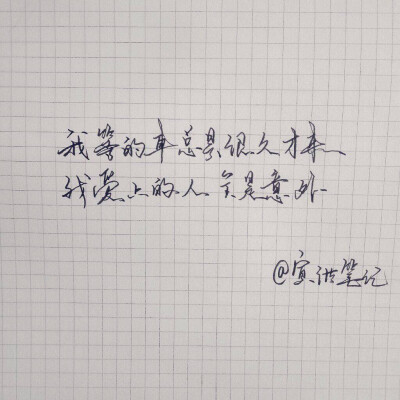 我等的车总是很久才来
我爱上的人全是意外
@宣洪笔记